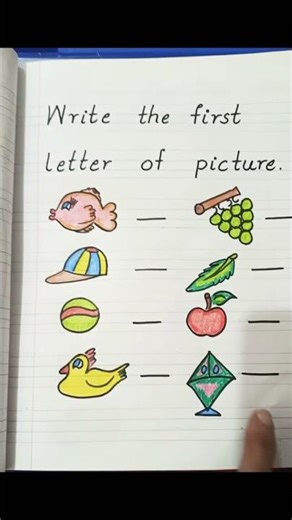 Write the first
letter of picture.